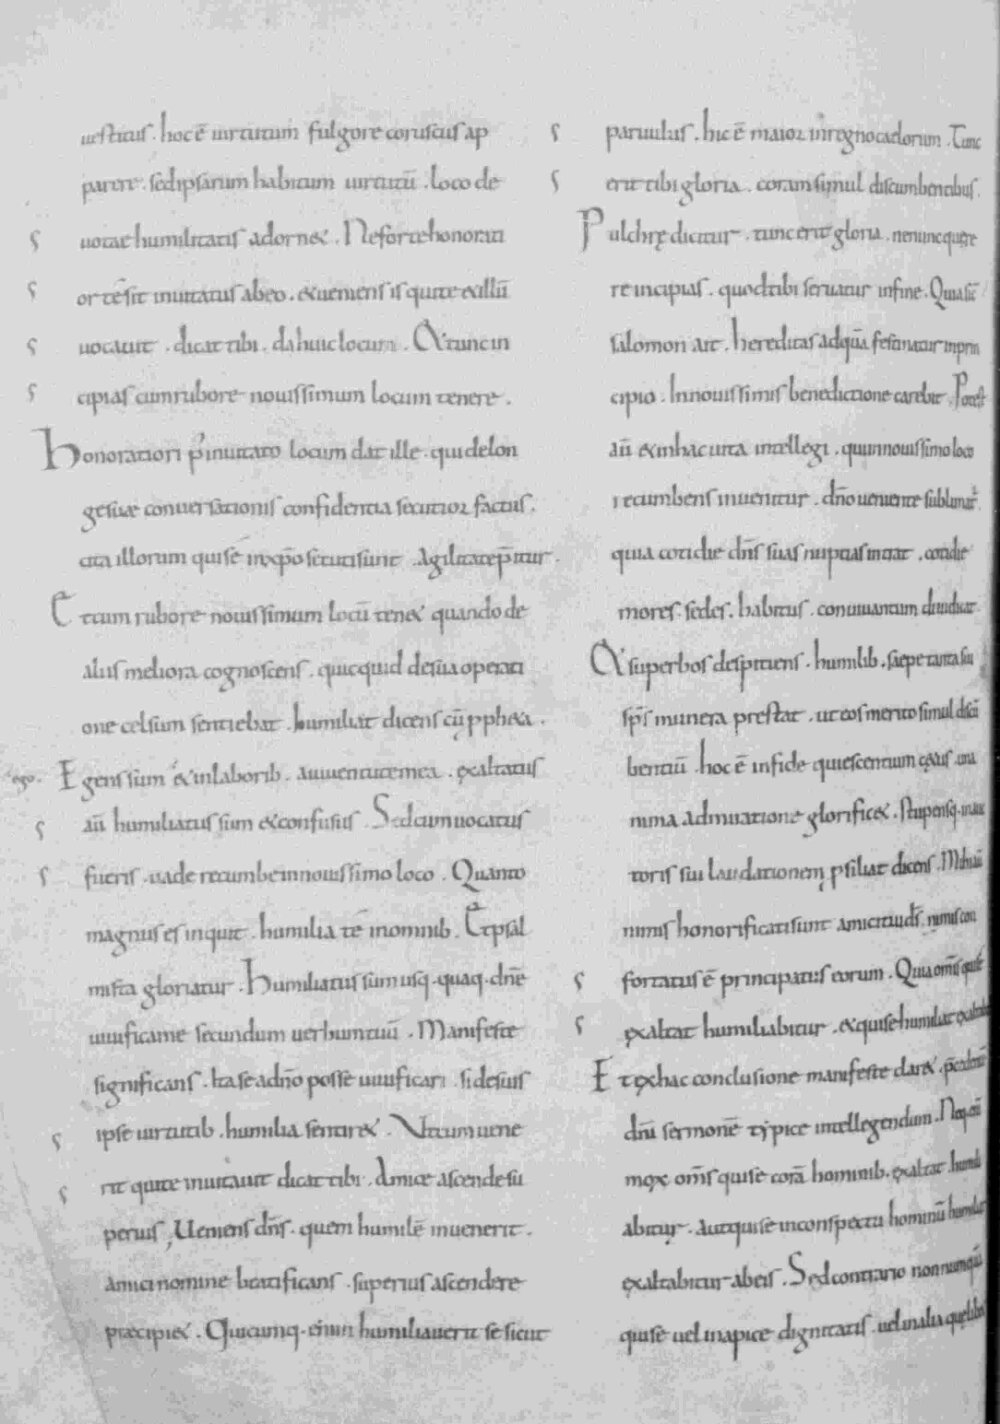 uestitus . hoc ē uirtutum fulgore coruscus ap
parere . sed ipsarum habitum uirtutū . loco de
uotae humilitatis adornet . Ne forte honorati
or te sit inuitatus ab eo . & ueniens is qui te & illū
uocauit . dicat tibi . da huic locum . & tunc in
cipias cum rubore nouissimum locum tenere .
Honoratiori p̄inuitato locum dat ille . qui de lon
geuae conuersationis confidentia securior factus .
cita illorum qui sē in xp̄o secuti sunt . agilitate p̄itur .
Et cum rubore nouissimum locū ten& quando de
aliis meliora cognoscens . quicquid de sua operati
one celsum sentiebat . humiliat dicens cū pph&a .
ego . Egens sum & in laborib . a iuuentute mea . exaltatus
aū humiliatus sum & confusus . Sed cum uocatus
fueris . uade recumbe in nouissimo loco . Quanto
magnus es inquit . humilia te in omnib . Et psal
mista gloriatur . Humiliatus sum usq . quaq . dn̄e
uiuifica me secundum uerbum tuū . Manifeste
significans . ita se a dn̄o posse uiuificari . si de suis
ipse uirtutib . humilia sentir& . Ut cum uene
rit qui te inuitauit dicat tibi . Amice ascende su
perius ; Ueniens dn̄s . quem humilē inuenerit .
amici nomine beatificans . superius ascendere
praecipi& . Quicumq . enim humiliauerit se sicut
paruulus . hic ē maior in regno caelorum . Tunc
erit tibi gloria . coram simul discumbentibus .
Pulchrę dicitur . tunc erit gloria . ne nunc quęre
re incipias . quod tibi seruatur in fine . Quia sic
salomon ait . Hereditas ad quā festinatur in prin
cipio . In nouissimis benedictione carebit . Potest
aū & in hac uita intellegi . qui in nouissimo loco
recumbens inuenitur . dn̄o ueniente sublimat
quia cotidie dn̄s suas nuptias intrat . cotidie
mores . sedes . habitus . conuiuantum diiudicat .
& superbos despiciens . humilib . saepe tanta sui
sp̄s munera prestat . ut eos merito simul discū
bentiū . hoc ē in fide quiescentium cętus . una
nima admiratione glorific& . stupensq .
toris sui laudationem psiliat dicens . Mihi aū
nimis honorificati sunt amici tui dś . nimis con
fortatus ē principatus eorum . Quia omīs qui se
exaltat humiliabitur . & qui se humiliat exaltabitur
Et ex hac conclusione manifeste clar& .
dn̄i sermonē typice intellegendum . Neq enī
mox om̄s qui se corā hominib . exaltat . humili
abitur . aut qui se in conspectu hominū humiliat
exaltabitur ab eis . Sed contrario non nunquā
qui se uel in apice dignitatis . uel in alia quęlibet